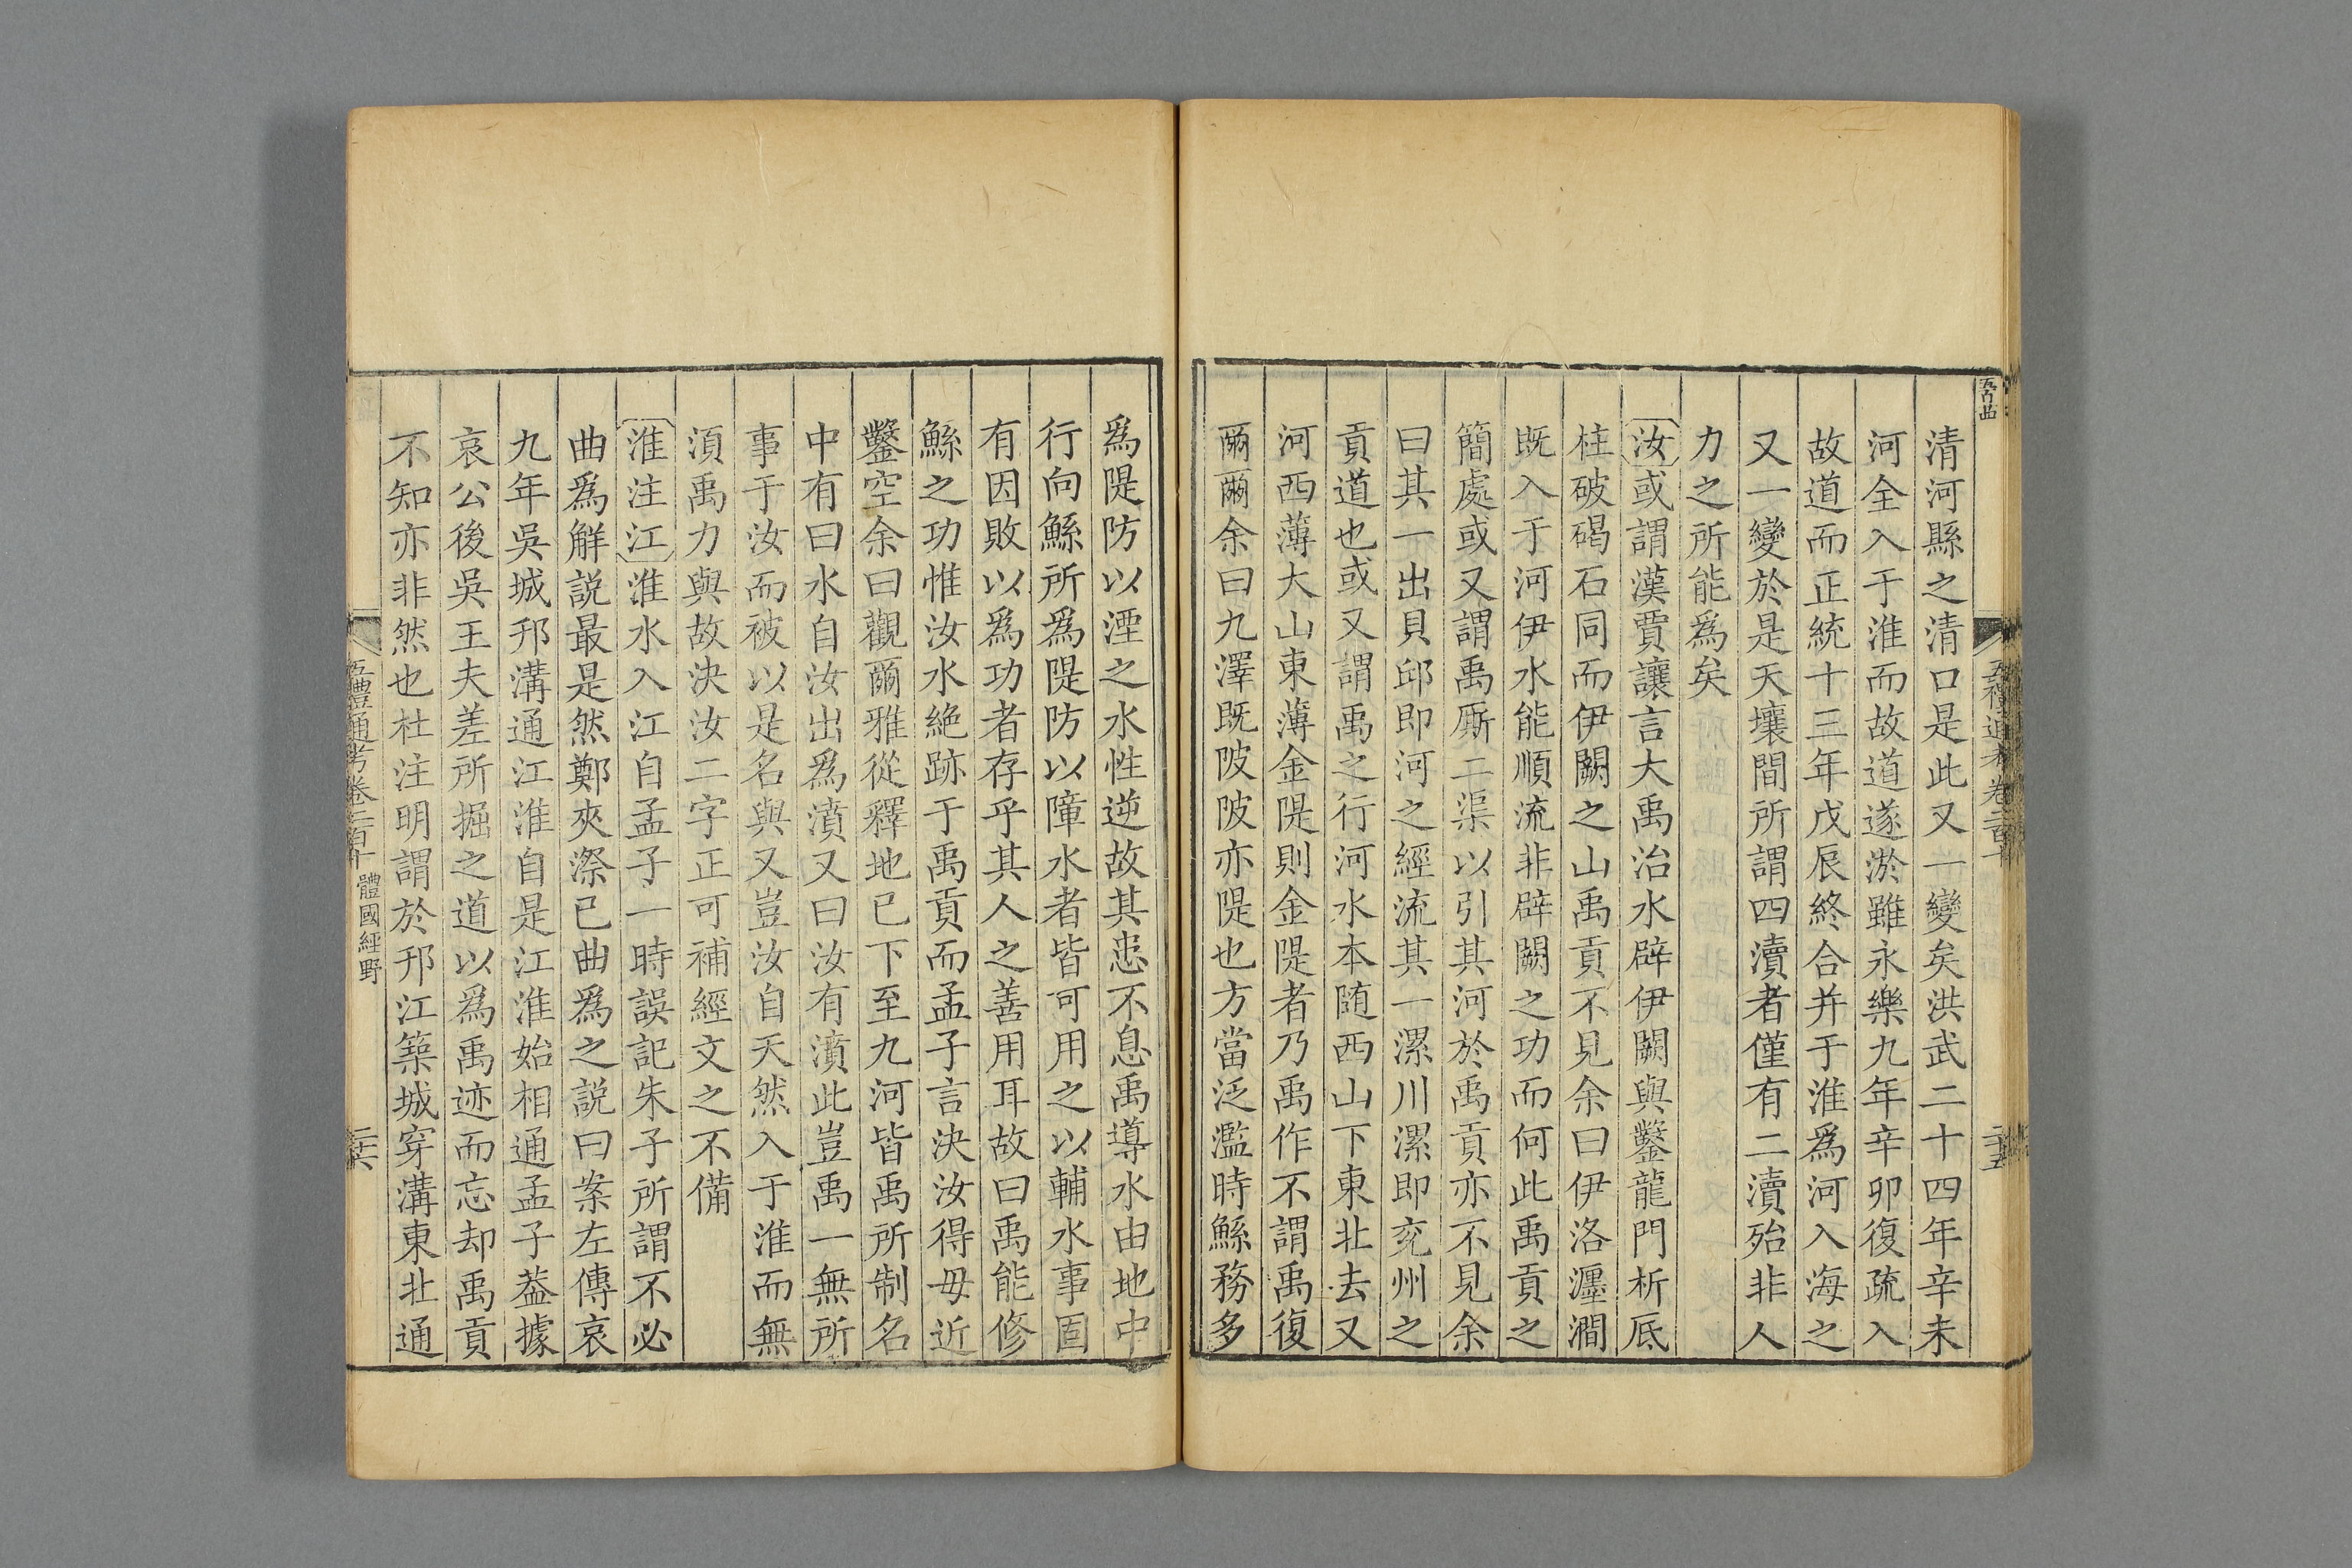 清河縣之清口是此又一變矣洪武二十四年辛未
河全入于淮而故道遂淤雖永樂九年辛卯復疏入
故道而正統十三年戊辰終合并于淮爲河入海之
又一變於是天壤間所謂四瀆者僅有二瀆殆非人
力之所能爲矣
汝或謂漢賈讓言大禹治水辟伊闕與鑿龍門析厎
柱破碣石同而伊闕之山禹貢不見余曰伊洛瀍澗
既入于河伊水能順流非辟闕之功而何此禹貢之
簡處或又謂禹厮二渠以引其河於禹貢亦不見余
曰其一出貝邱即河之經流其一漯川漯即兖州之
貢道也或又謂禹之行河水本随西山下東北去又
河西薄大山東薄金隄則金隄者乃禹作不謂禹復
爾爾余曰九澤既陂陂亦隄也方當泛濫時鯀務多
爲隄防以湮之水性逆故其患不息禹導水由地中
行向鯀所爲隄防以障水者皆可用之以輔水事固
有因敗以爲功者存乎其人之善用耳故曰禹能修
鯀之功惟汝水絶跡于禹貢而孟子言決汝得毋近
鑿空余曰觀爾雅從釋地已下至九河皆禹所制名
中有曰水自汝出爲濆又曰汝有濆此豈禹一無所
事于汝而被以是名與又豈汝自天然入于淮而無
須禹力與故決汝二字正可補經文之不備
淮注江淮水入江自孟子一時誤記朱子所謂不必
曲爲解説最是然鄭夾漈已曲爲之説曰案左傳哀
九年吳城邗溝通江淮自是江淮始相通孟子葢據
哀公後吳王夫差所掘之道以爲禹迹而忘却禹貢
不知亦非然也杜注明謂於邗江築城穿溝東北通
五禮通考卷二百十 體國經野
二十六